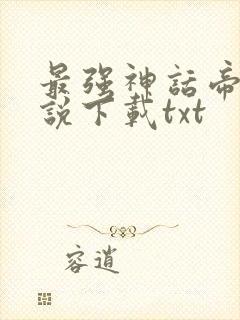 最强神話帝
説下載txt
容逍